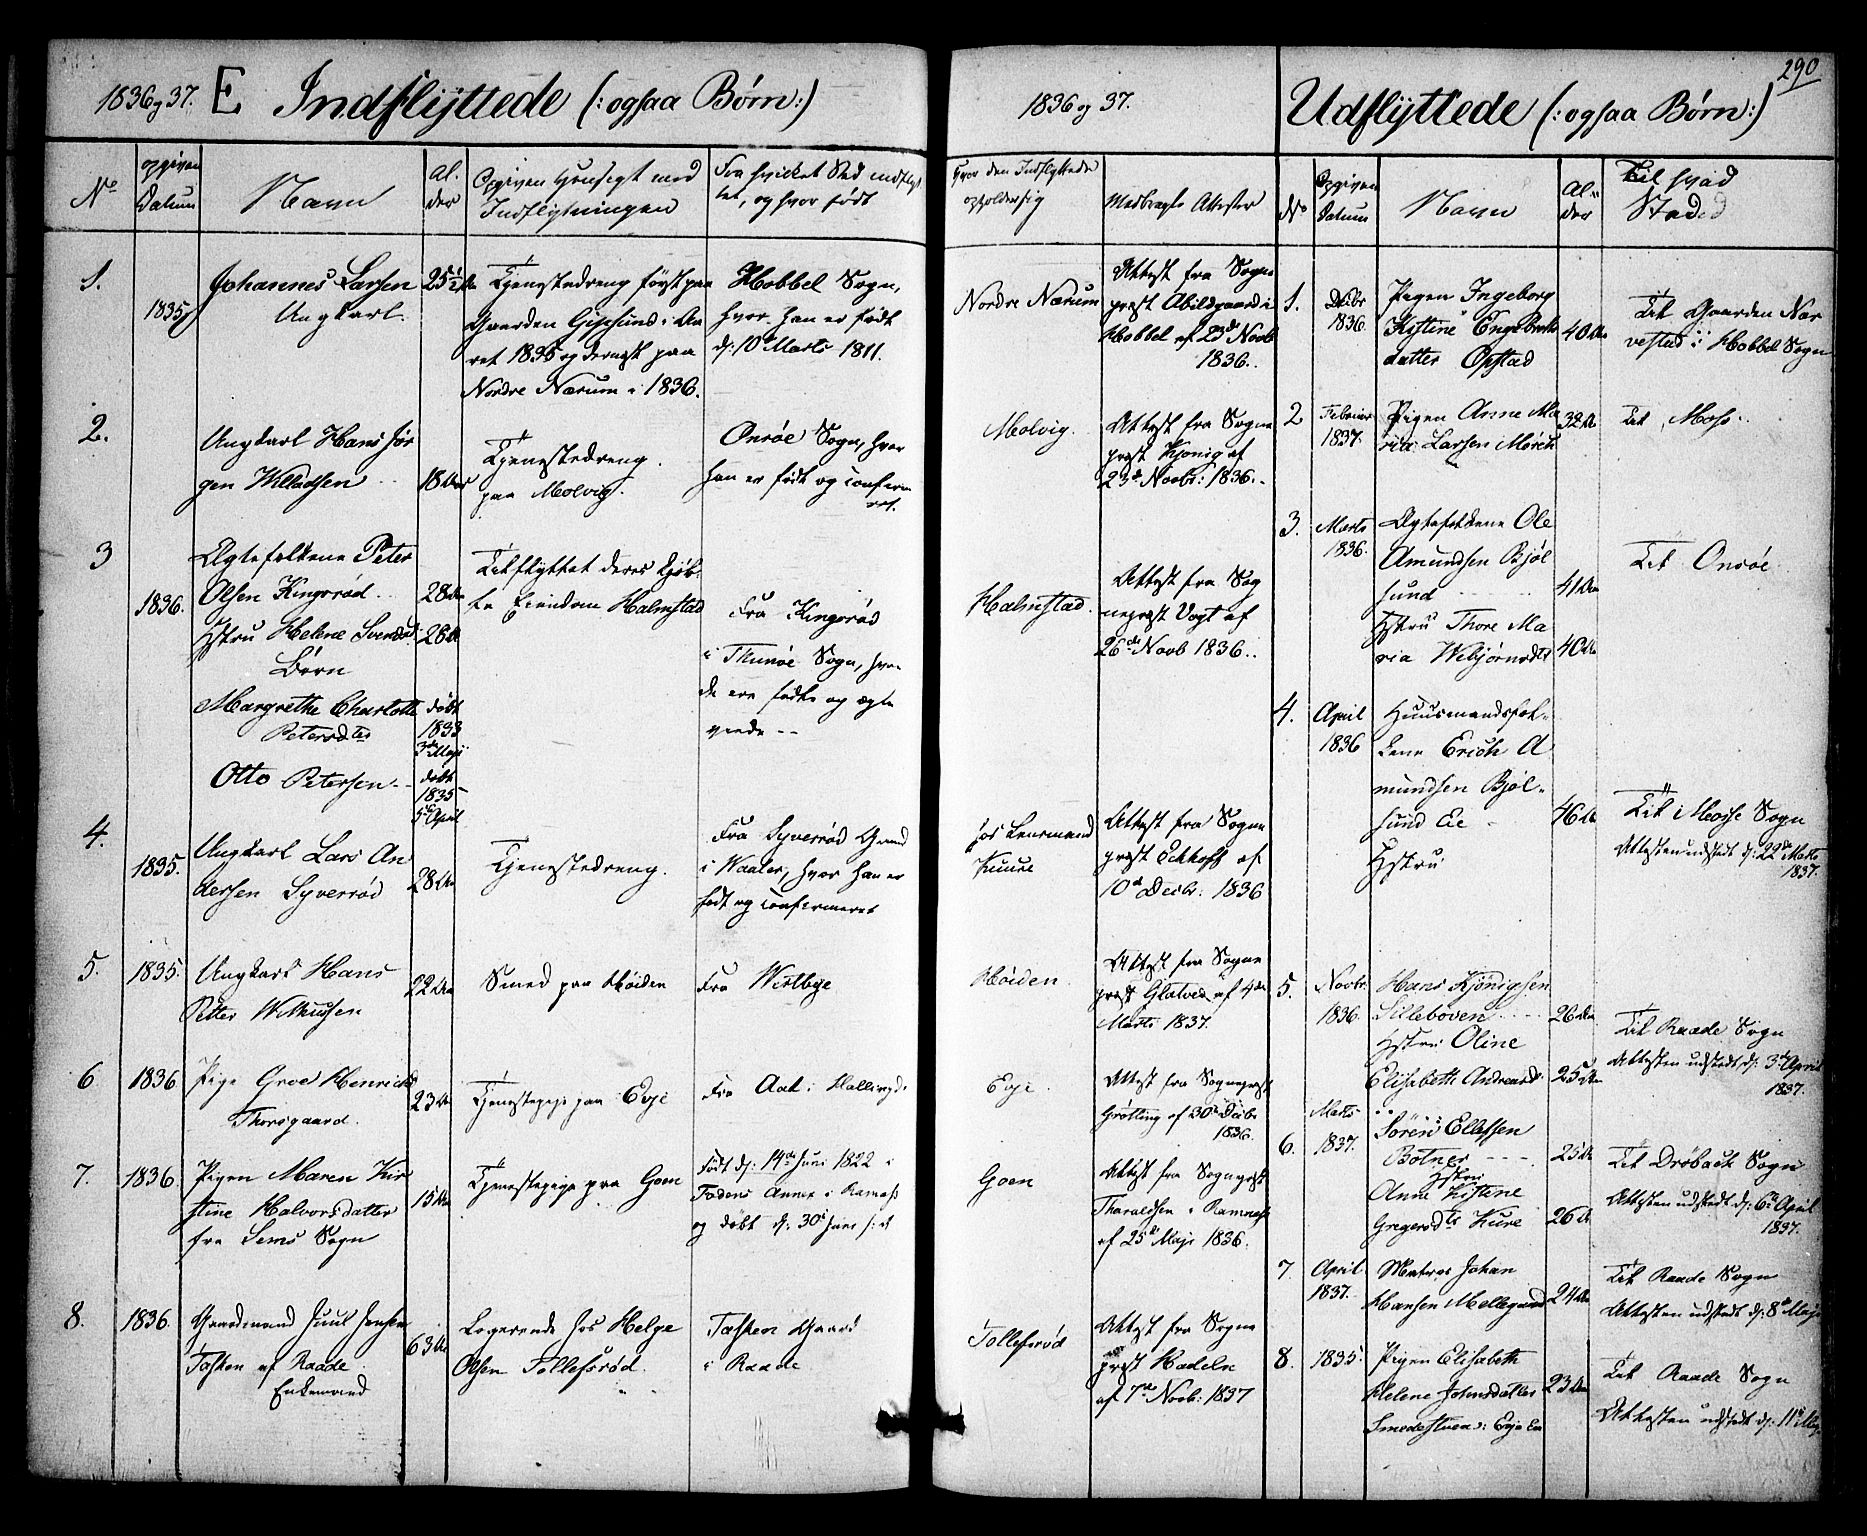 290
1836 og 37. E Indflyttede (: ogsaa Børn :)
No
opgiven Datum
Navn
Al-
der
Opgiven Hensigt med
Indflytningen
Fra hvilket Sted indflyt
tet, og hvor født
Hvor den Indflyttede
opholder sig
Medbragte Attester
1.
1835
Johannes Larsen
Ungkarl.
25½
Tjenestedreng først paa
Gaarden Gipsund i Aa
ret 1835 og dernæst paa
Nordre Nærum i 1836.
Hobbel Sogn,
hvor han er født
d: 10de Marts 1811.
Nordre Nærum
Attest fra Sogne
præst Abildgaard i
Hobbel af 23de Novb
1836.
2.
Ungkarl Hans Jør
gen Willadsen
18 Aar
Tjenestedreng
paa Molvig.
Onsøe Sogn, hvor
han er født og confirme
ret.
Molvig.
Attest fra Sogne
præst Kjønig af
23de Novbr: 1836.
3
1836.
Ægtefolkene Peter
Olsen Kingsrød
28
Hstru Helene
28
Børn
Margrethe Charlotte
Petersdtr
døbt
1833
3de Maji
Otto Petersen
døbt
1835
5te April
Tilflyttet deres kjøb-
te Eiendom Halmstad
Fra Kingsrød
i Thunøe Sogn, hvor
de ere fødte og ægte
viede
Halmstad.
Attest fra Sog
nepræst Vogt af
26de Novb 1836.
4.
1835.
Ungkarl Lars An
dersen Syverrød
28
Tjenestedreng.
Fra Syverrød Gaard
i Waaler, hvor han er
født og confirmeret
hos Lensmand
Kuure
Attest fra Sogne
præst Eckhoff af
10de Decbr: 1836
5.
1835.
Ungkarl Hans
Petter Wilhussen
22
Smed paa Høiden
Fra Wistbye
Høiden.
Attest fra Sogne
præst Glatved af 4de
Marts 1837.
6
1836
Pige Groe Henrichs
Thorsgaard.
23
Tjenestepige paa Evje
Fra Aal i Hallingd:
Evje.
Attest fra Sognepræst
Grøtting af 30te Decbr
1836.
7.
1836.
Pigen Maren Kir
stine Halvorsdatter
fra Sems Sogn
15
Tjenestepige paa Goen
Født d: 14de Juni 1822 i
Fodens Annex i Ramnæs
og døbt d: 30te Juni
Goen
Attest fra Sognepræst
Tharaldsen i Ramnæs
af 25de Maji 1836.
8.
1836.
Gaardmand Juul Jensen
Tasken af Raade
Enkemand
63
Logerende hos Helge
Olsen Tollefsrød.
Tasken Gaard
i Raade
Tollefsrød
Attest fra Sogne
præst Hadeln
af 7de Novb: 1837
1836 og 37.
Udflyttede (: ogsaa Børn :)
No
Opgiven
Datum
Navn
Al-
der
Til hvad
Sted
1.
Decbr
1836.
Pigen Ingeborg
Kistine Engebrets
datter Opstad
40
Til Gaarden Nar
vestad i Hobbel Sogn
2
Februar
1837.
Pigen Anne Ma
ria Larsen Mørch
32
Til Moss.
3.
Marts
1836.
Ægtefolkene Ole
Amundsen Bjøl
sund
41
Hstru Thore Ma
ria Webjørnsdtr
40
Til Onsøe
4.
April
1836
Huusmandsfol-
kene Erich A
mundsen Bjøl-
sund Eie
46
Hstru
Til Mosse Sogn
Attesten udstedt d: 22de Marts
1837.
5.
Novbr.
1836.
Hans Kjönigsen
Sillebøven
26
Hstru Oline
Elisabeth Andreasd:
25
Til Raade Sogn
Attesten udstedt d: 3de April
1837.
6.
Marts
1837.
Søren Ellefsen
Botner
25
Hstru
Anne Kistine
Gregersdtr Kure
26
Til Drøbach Sogn
Attesten udstedt d: 6te April
1837.
7.
April
1837.
Matros Johan
Hansen Mellegaard
24
Til Raade Sogn
Attesten udstedt d: 8de Maji
8.
1835.
Pigen Elisabeth
Helene Johnsdatter
Smedestuen i Evje Eie
23
Til Raade Sogn
Attesten udstedt d: 11te Maj